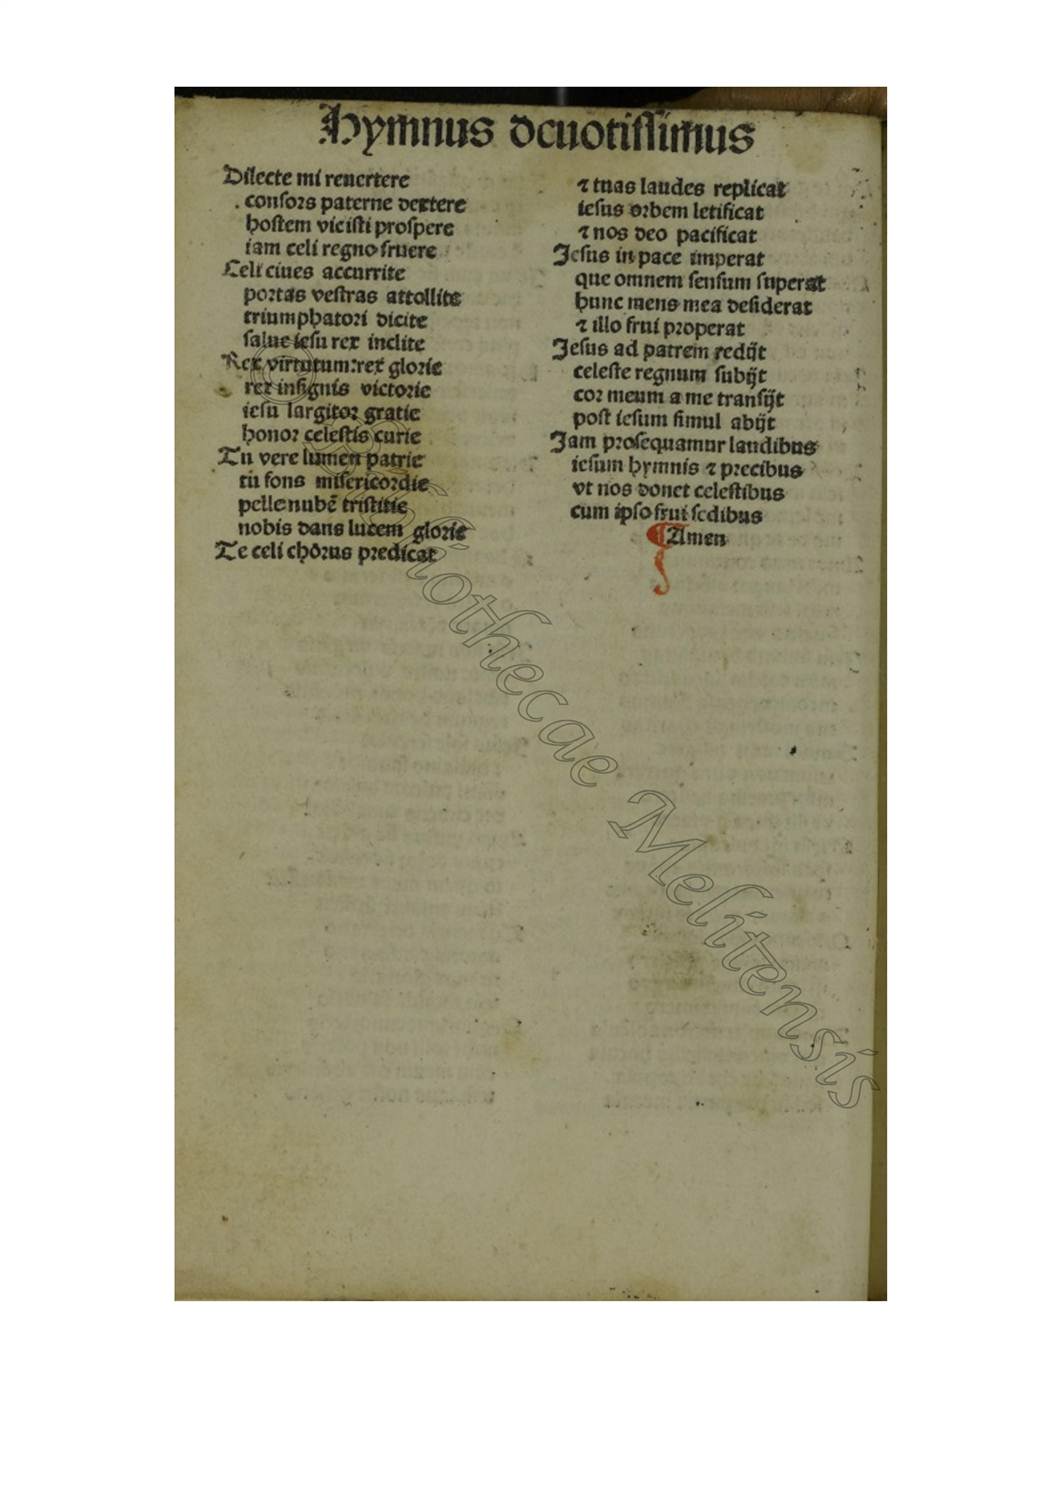 Hymnus deuotissimus
Dilecte mi reuertere
consors paterne dextere
hostem vicisti prospere
iam celi regno fruere
Celi ciues accurrite
portas vestras attollite
triumphatori dicite
salue iesu rex inclite
Rex virtutum: rex glorie
rex insignis victorie
iesu largitor gratie
honor celestis curie
Tu vere lumen patrie
tu fons misericordie
pelle nubē tristitie
nobis dans lucem glorie
Te celi chorus predicat
⁊ tuas laudes replicat
iesus orbem letificat
⁊ nos deo pacificat
Jesus in pace imperat
que omnem sensum superat
hunc mens mea desiderat
⁊ illo frui properat
Jesus ad patrem redijt
celeste regnum subijt
cor meum a me transijt
post iesum simul abijt
Jam prosequamur laudibus
iesum hymnis ⁊ precibus
vt nos donet celestibus
cum ipso frui sedibus
¶ Amen
© Bibliothecae Melitensis